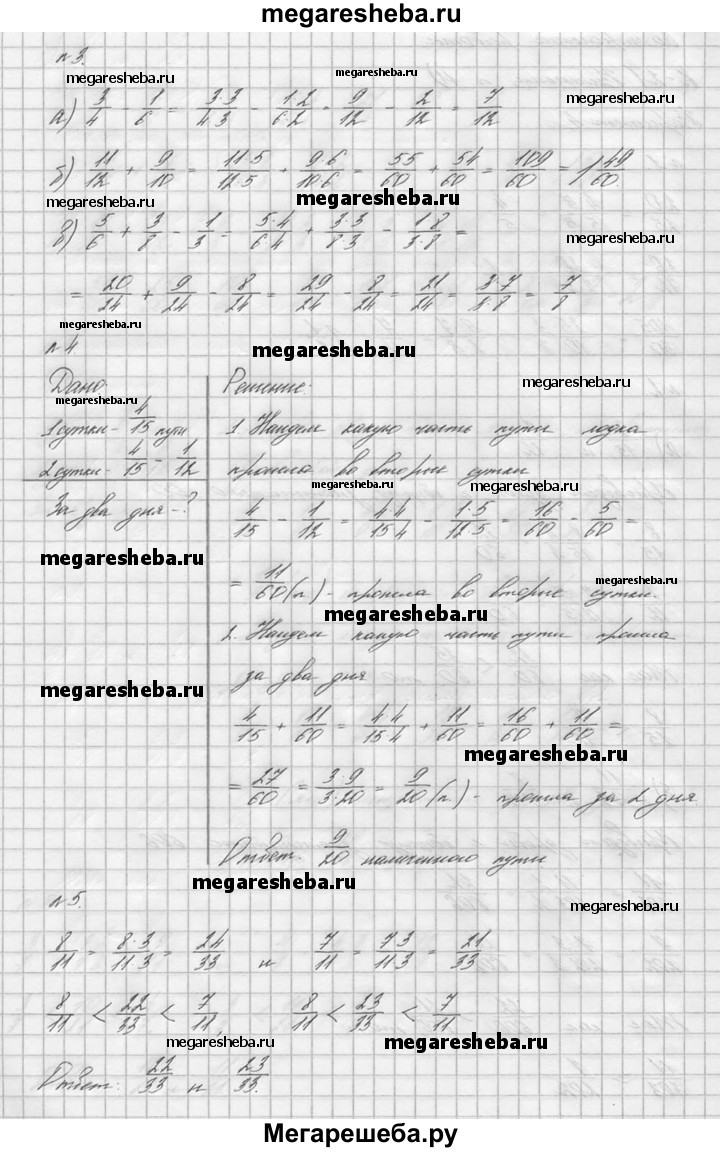 megaresheba.ru
n 3.
megaresheba.ru megaresheba.ru megaresheba.ru
а) 3/4 - 1/6 = 3·3/4·3 - 1·2/6·2 = 9/12 - 2/12 = 7/12
б) 11/12 + 9/10 = 11·5/12·5 + 9·6/10·6 = 55/60 + 54/60 = 109/60 = 1 49/60.
megaresheba.ru megaresheba.ru
в) 5/6 + 3/8 - 1/3 = 5·4/6·4 + 3·3/8·3 - 1·8/3·8 =
megaresheba.ru
= 20/24 + 9/24 - 8/24 = 29/24 - 8/24 = 21/24 = 3·7/3·8 = 7/8
megaresheba.ru
n 4
megaresheba.ru
Дано: Решение:
megaresheba.ru
megaresheba.ru
1 сутки - 4/15 пути
2 сутки - 4/15 - 1/12
За два дня - ?
1. Найдем какую часть пути лодка
прошла во вторые сутки
megaresheba.ru megaresheba.ru
4/15 - 1/12 = 4·4/15·4 - 1·5/12·5 = 16/60 - 5/60 =
megaresheba.ru
= 11/60 (п) - прошла во вторые сутки.
megaresheba.ru
megaresheba.ru
2. Найдем какую часть пути прошла
за два дня
megaresheba.ru
4/15 + 11/60 = 4·4/15·4 + 11/60 = 16/60 + 11/60 =
megaresheba.ru
= 27/60 = 3·9/3·20 = 9/20 (п) - прошла за 2 дня
Ответ: 9/20 намеченного пути
megaresheba.ru
n 5.
megaresheba.ru
8/11 = 8·3/11·3 = 24/33 и 7/11 = 7·3/11·3 = 21/33
8/11 < 22/33 < 7/11, 8/11 < 23/33 < 7/11
megaresheba.ru megaresheba.ru
Ответ: 22/33 и 23/33.
Мегарешеба.ру